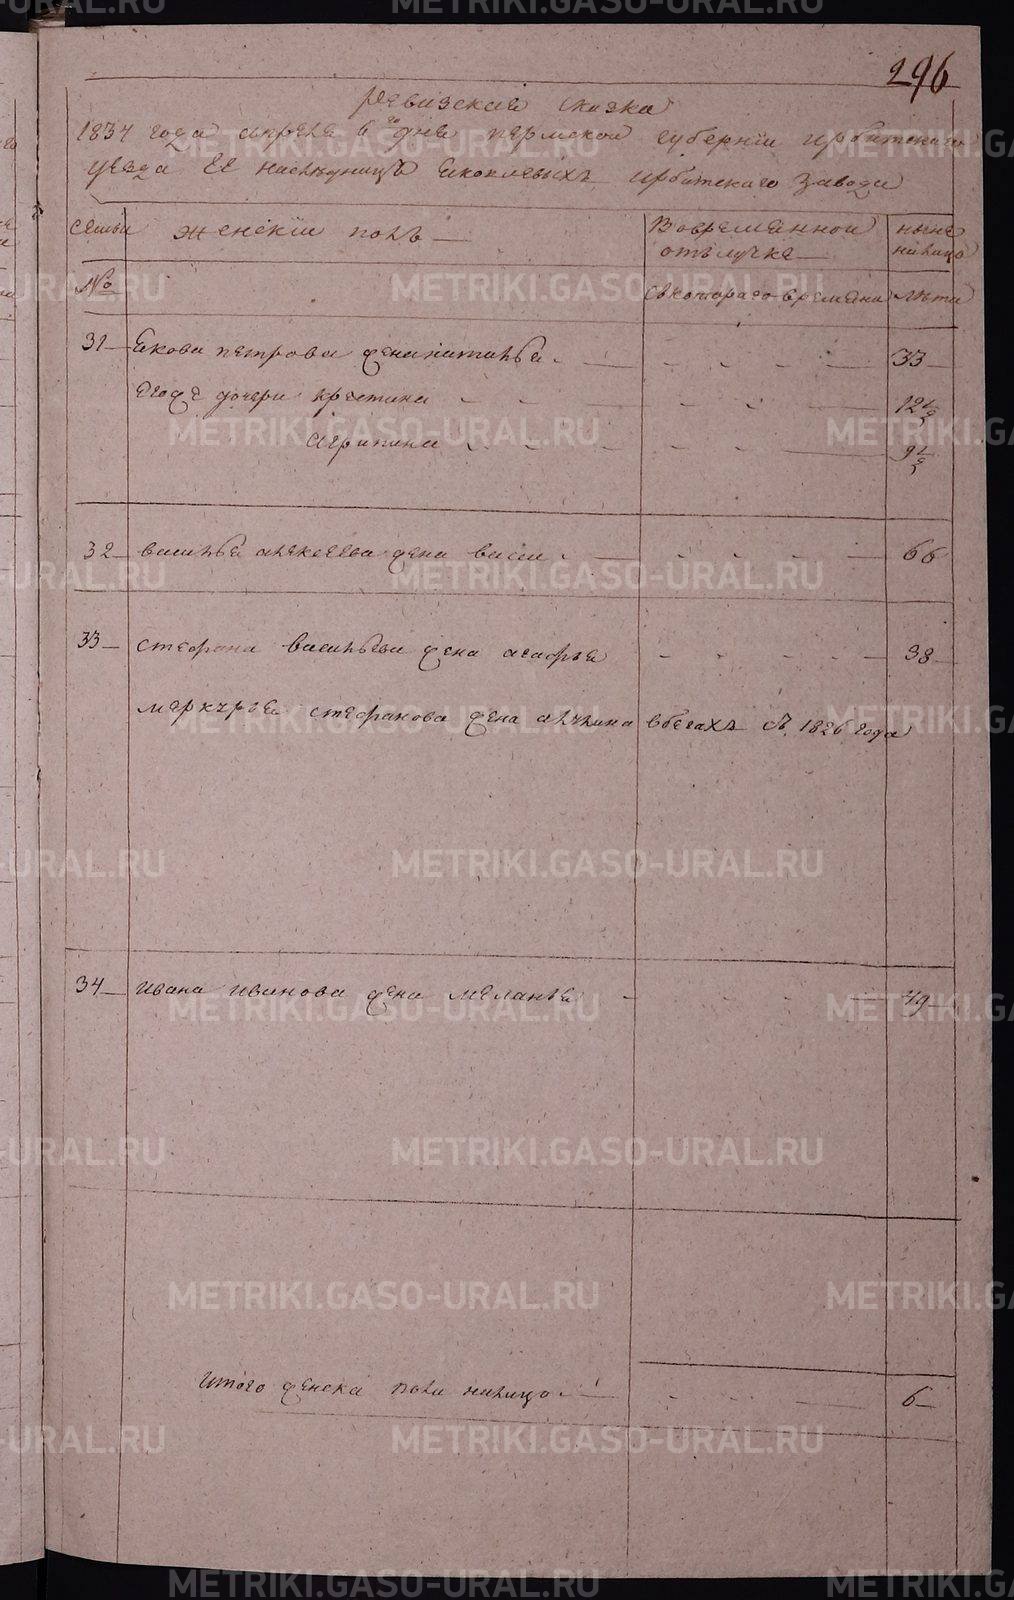 296
ревизская сказка
1834 года апреля 6 го дня пермской губернии ирбитского
уезда ее наследницъ яковлевыхъ ирбитского завода
семьи женский полъ во временной отълучке ныне налицо
№ съ котораго времени лета
31 якова петрова жена наталья 33
его же дочери кристина 12 1/2
агрипина 9 1/2
32 василья алексеева жена васса 66
33 стефана васильева жена агафья 38
меркурья стефанова жена акулина в бегахъ съ 1826 года
34 ивана иванова жена меланья 49
итого женска пола налицо 6
METRIKI.GASO-URAL.RU